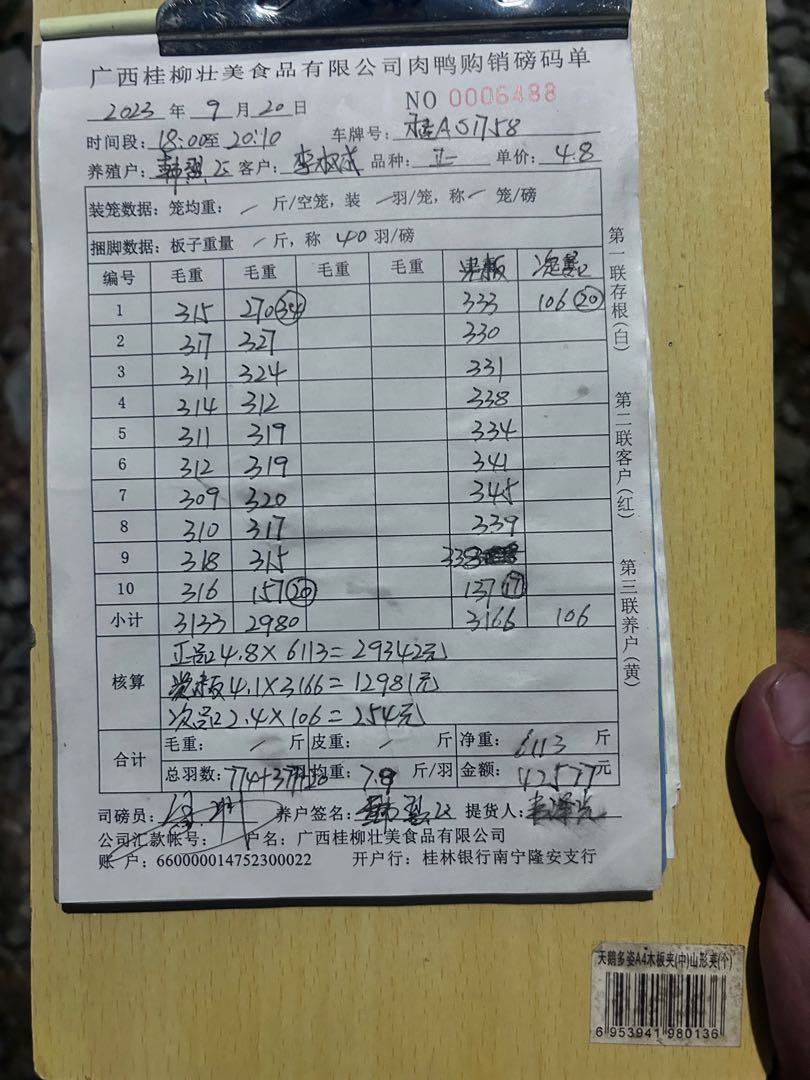 广西桂柳壮美食品有限公司肉鸭购销磅码单
2023 年 9 月 20 日 NO 0006488
时间段: 18:00至 20:10 车牌号: 桂A51758
养殖户: 韩 客户: 李 品种: 正 单价: 4.8
装笼数据: 笼均重: / 斤/空笼, 装 / 羽/笼, 称 / 笼/磅
捆脚数据: 板子重量 / 斤, 称 40 羽/磅
编号 毛重 毛重 毛重 毛重 次品
1 315 270 34 333 106 20
2 317 327 330
3 311 324 331
4 314 312 338
5 311 319 334
6 312 319 341
7 309 320 345
8 310 317 339
9 318 315 338
10 316 157 20 137 17
小计 3133 2980 3166 106
核算
正品 4.8×6113=29342元
4.1×3166=12981元
次品 2.4×106=254元
合计 毛重: / 斤 皮重: / 斤 净重: 6113 斤
总羽数: 774+377+20 均重: 7.9 斤/羽 金额: 42577 元
司磅员: 养户签名: 韩 提货人:
公司汇款帐号: 户名: 广西桂柳壮美食品有限公司
账 户: 660000014752300022 开户行: 桂林银行南宁隆安支行
第一联存根(白) 第二联客户(红) 第三联养户(黄)
天鹅多姿A4木板夹(中)山形夹(个)
6 953941 980136